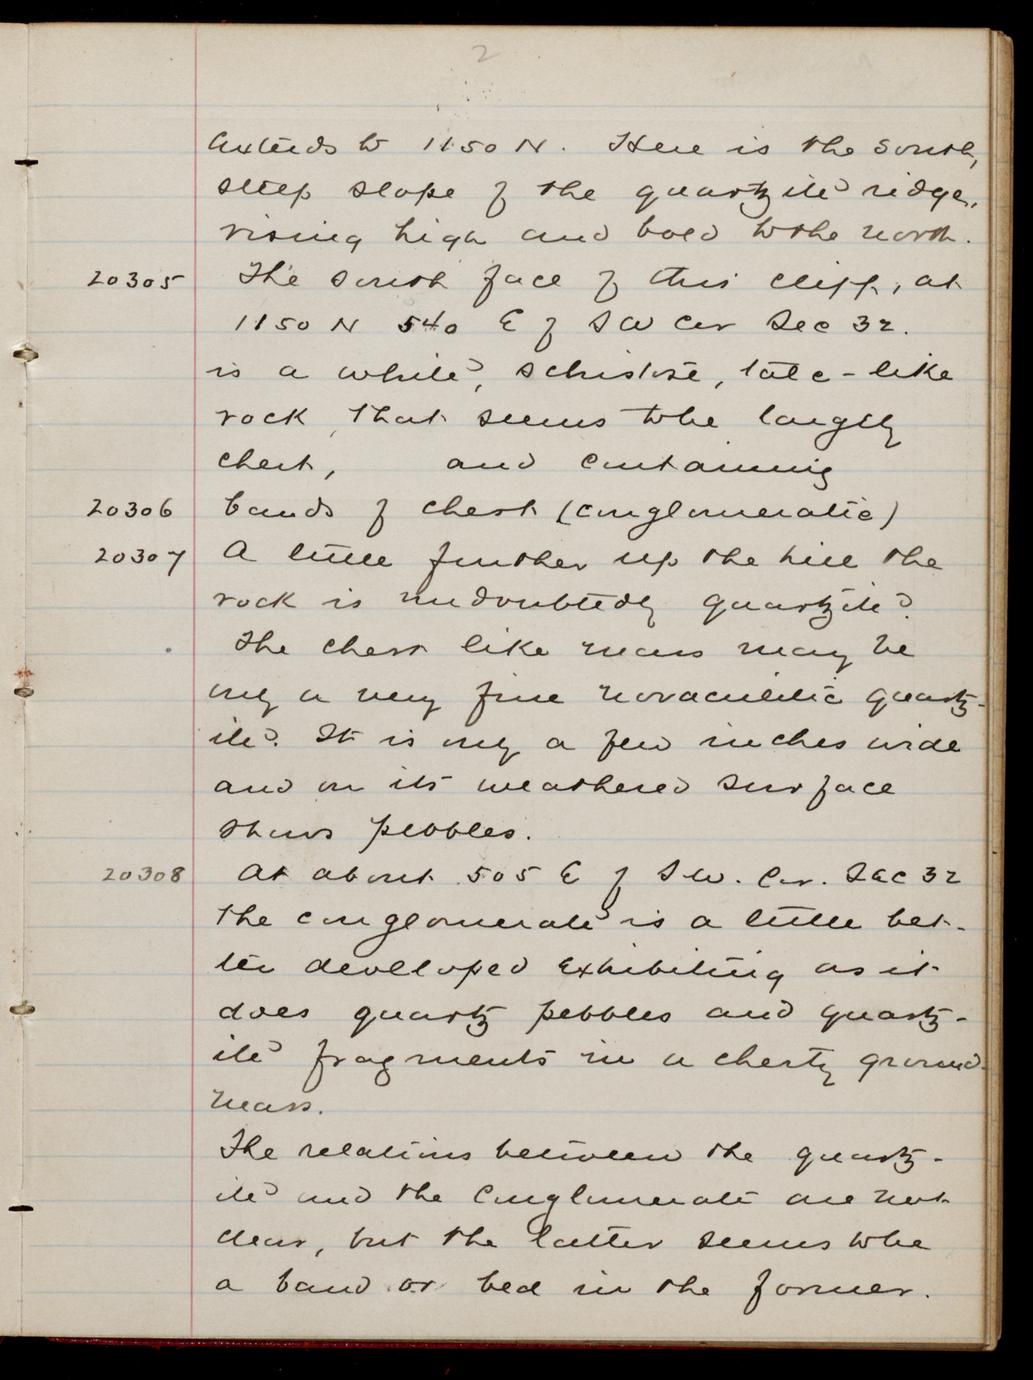 2
extends to 1150 N. Here is the south,
steep slope of the quartzite ridge,
rising high and bold to the north.
20305 The south face of this cliff, at
1150 N 540 E of SW Cor Sec 32.
is a white, schistose, talc-like
rock, that seems to be largely
chert, and containing
20306 bands of chert (conglomeratic)
20307 A little further up the hill the
rock is undoubtedly quartzite.
The chert like mass may be
only a very fine novaculitic quartz-
ite. It is only a few inches wide
and on its weathered surface
shows pebbles.
20308 At about 505 E of S.W. Cor. Sec 32
the conglomerate is a little bet-
ter developed exhibiting as it
does quartz pebbles and quartz-
ite fragments in a cherty ground
mass.
The relations between the quartz-
ite and the conglomerate are not
clear, but the latter seems to be
a band or bed in the former.